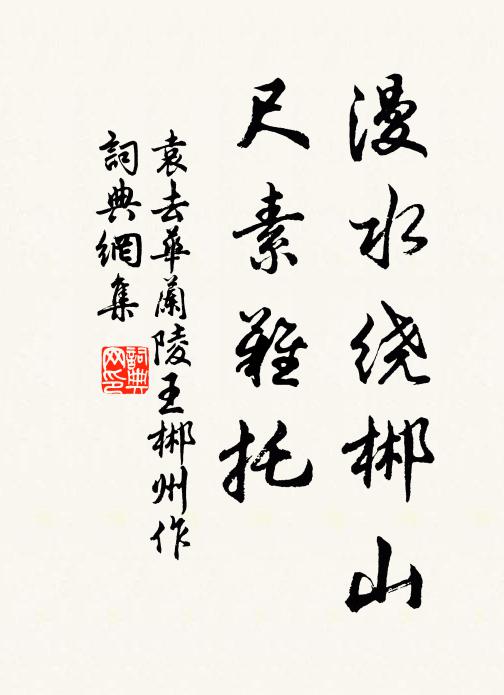 漫水绕郴山
尺素難托
袁去華蘭陵王郴州作
詞典網集
詞典網印